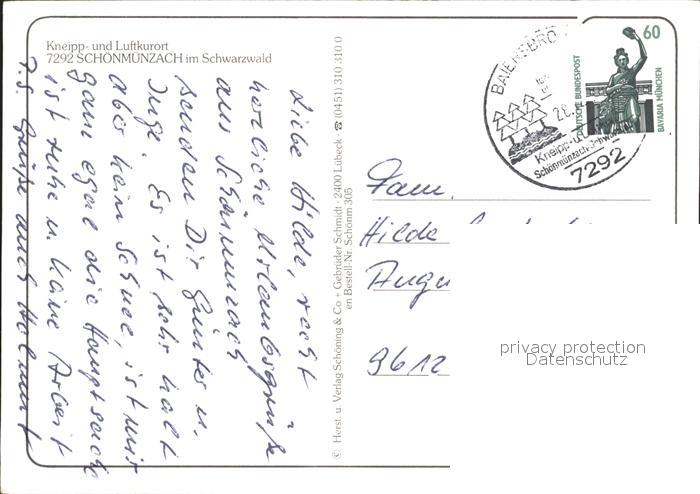 Kneipp- und Luftkurort
7292 SCHÖNMÜNZACH im Schwarzwald
Liebe Hilde, recht
herzliche Urlaubsgrüße
aus Schönmünzach
senden Dir Günter u.
Inge. Es ist sehr kalt
aber kein Schnee, ist mir
ganz egal die Hauptsache
ist ruhe u. keine Arbeit
P.S. Grüße auch Helmut
© Herst. u. Verlag Schöning & Co + Gebrüder Schmidt · 2400 Lübeck · ☎ (0451) 310 310 0
en Bestell-Nr. Schönm 305
BAIERSBRO
Kneipp-u.L
Schönmünzach-Schwarzw
7292
60
DEUTSCHE BUNDESPOST
BAVARIA MÜNCHEN
Fam.
Hilde
Augu
9612
privacy protection
Datenschutz